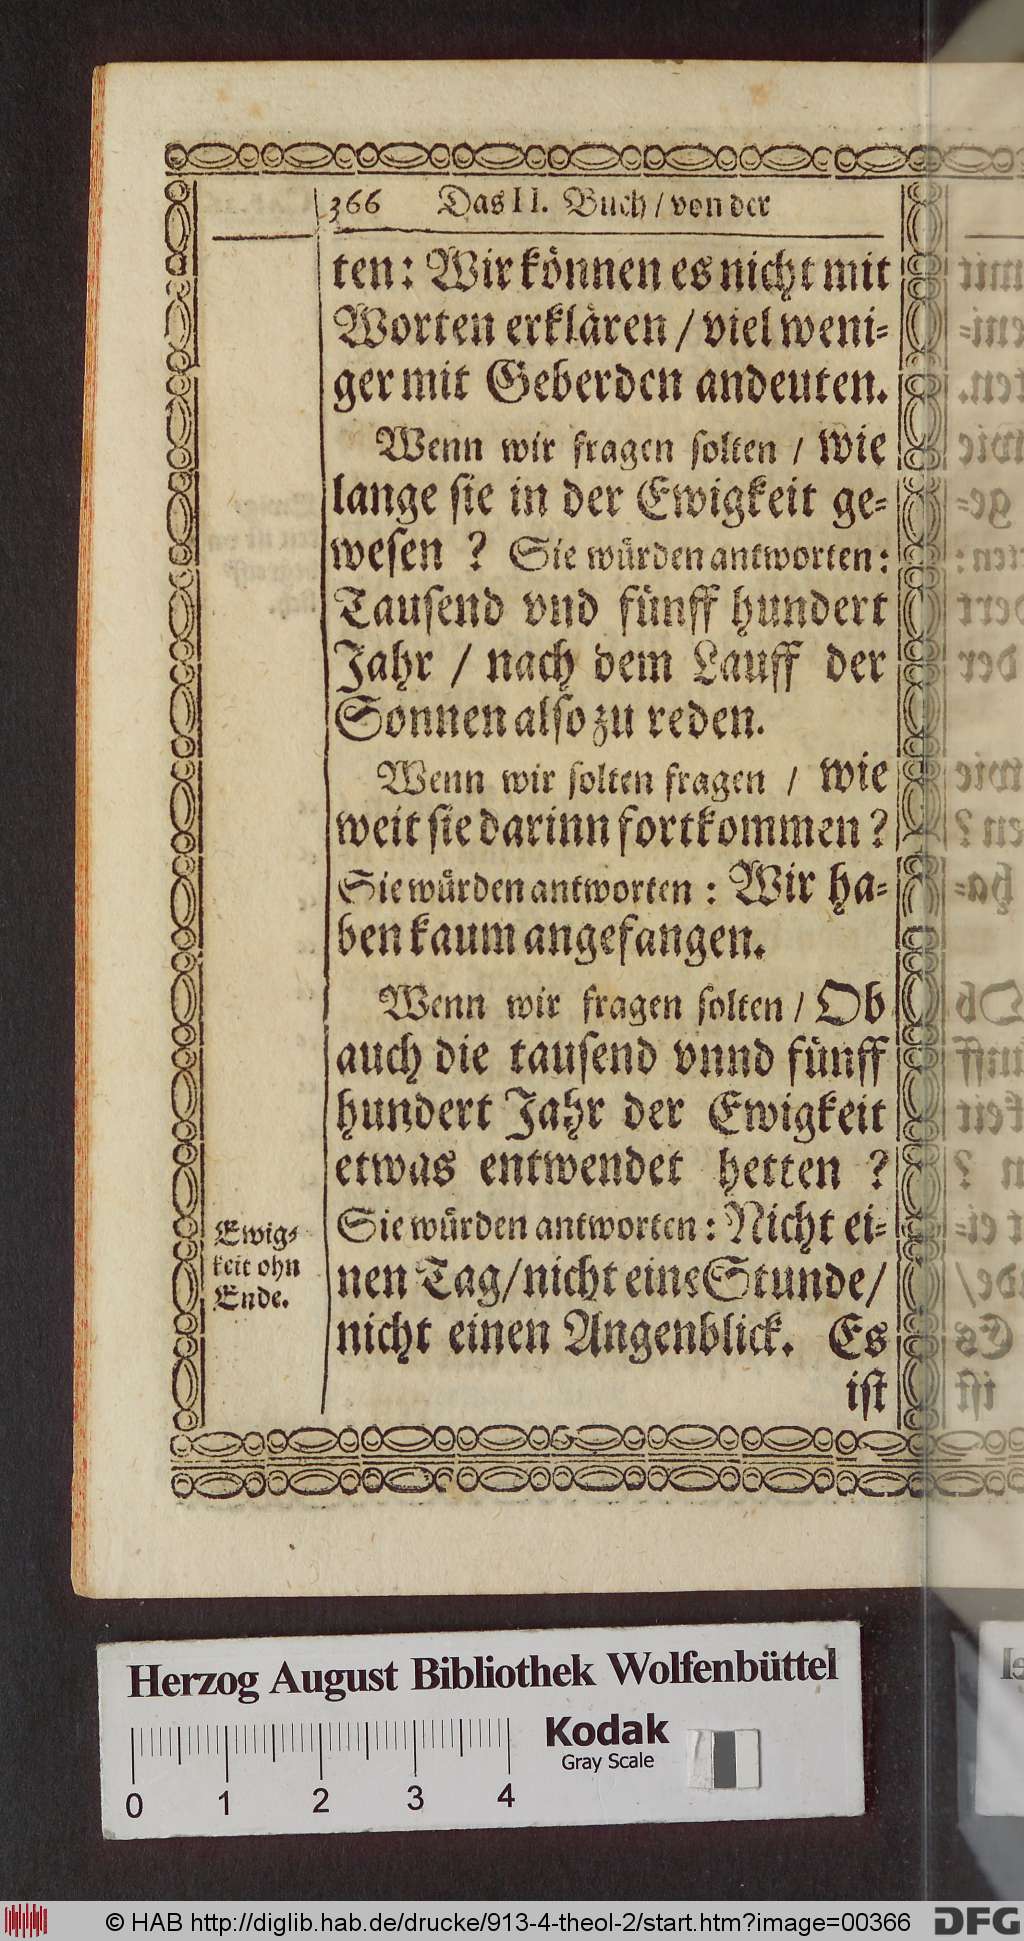 366 Das II. Buch / von der
ten: Wir können es nicht mit
Worten erklären / viel weni-
ger mit Geberden andeuten.
Wenn wir fragen solten / wie
lange sie in der Ewigkeit ge-
wesen ? Sie würden antworten:
Tausend vnd fünff hundert
Jahr / nach dem Lauff der
Sonnen also zu reden.
Wenn wir solten fragen / wie
weit sie darinn fortkommen ?
Sie würden antworten : Wir ha-
ben kaum angefangen.
Wenn wir fragen solten / Ob
auch die tausend vnnd fünff
hundert Jahr der Ewigkeit
etwas entwendet hetten ?
Sie würden antworten: Nicht ei-
nen Tag / nicht eine Stunde /
nicht einen Angenblick. Es
ist
Ewig-
keit ohn
Ende.
Herzog August Bibliothek Wolfenbüttel
Kodak
Gray Scale
0 1 2 3 4
© HAB http://diglib.hab.de/drucke/913-4-theol-2/start.htm?image=00366
DFG